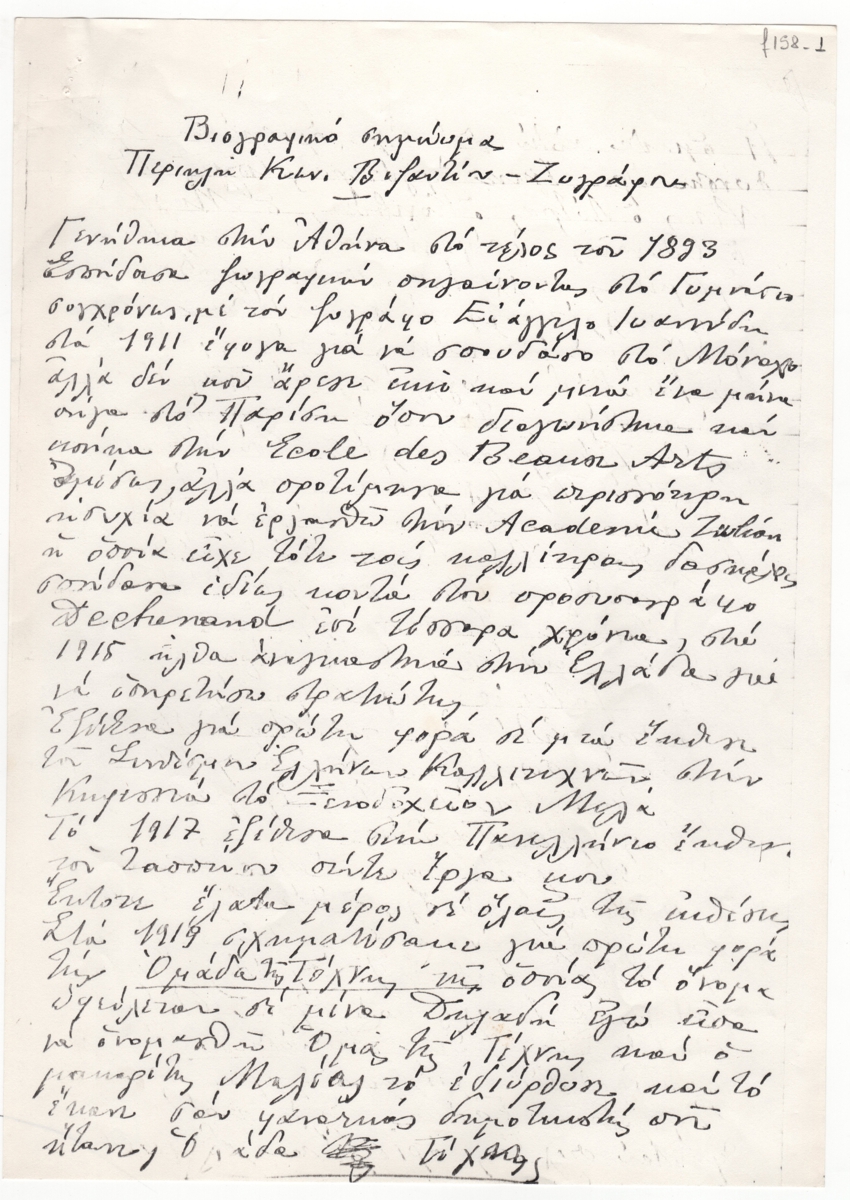 f198-1
Βιογραφικό σημείωμα
Περικλή Κων. Βυζαντίου – Ζωγράφου
Γενήθηκα στήν Ἀθήνα στό τέλος τοῦ 1893
Ἐσπούδασα ζωγραφικήν πηγαίνοντας στό Γυμνάσιο
συγχρόνως, μέ τόν ζωγράφο Εὐάγγελο Ἰωαννίδη
στά 1911 ἔφυγα γιά νά σπουδάσω στό Μόναχο
ἀλλά δέν μοῦ ἄρεσε ἐκεῖ καί μετά ἕνα μήνα
πῆγα στό Παρίσι ὅπου διαγωνίστηκα καί
μπῆκα στήν Ecole des Beaux Arts
ἀμέσως, ἀλλά προτίμησα γιά περισσότερη
ἡσυχία νά ἐργασθῶ στήν Academie Julian
ἡ ὁποία εἶχε τότε τούς καλλίτερους δασκάλους
σπούδασα ἰδίως κοντά στόν προσωπογράφο
Dechenaud ἐπί τέσσερα χρόνια, στά
1915 ἦλθα ἀναγκαστικά στήν Ἑλλάδα γιά
νά ὑπηρετήσω στρατιώτης
Ἐξέθεσα γιά πρώτη φορά σέ μιά ἔκθεση
τοῦ Συνδέσμου Ἑλλήνων Καλλιτεχνῶν στήν
Κηφισσιά στό Ξενοδοχεῖον Μελά
Τό 1917 ἐξέθεσα στήν Πανελλήνιο ἔκθεση
τοῦ Ζαππείου πέντε ἔργα μου
Ἔκτοτε ἔλαβα μέρος σέ ὅλες τίς ἐκθέσεις
Στά 1919 σχηματίσαμε γιά πρώτη φορά
τήν Ὁμάδα τῆς Τέχνης τῆς ὁποίας τό ὄνομα
ὀφείλεται σέ μένα Δηλαδή ἐγώ εἶπα
νά ὀνομασθῆ Ὁμάς τῆς Τέχνης καί ὁ
μακαρίτης Μαλέας τό ἐδιόρθωσε καί τό
ἔκανε σάν φανατικός δημοτικιστής πού
ἦταν, Ὁμάδα Τέχνης